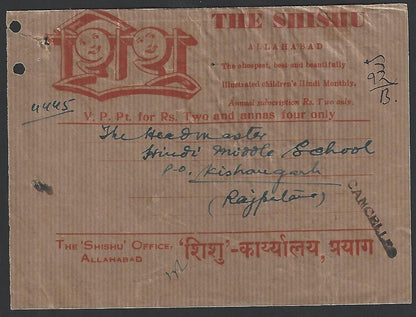 शिशु
THE SHISHU
ALLAHABAD
The cheapest, best and beautifully
Illustrated children's Hindi Monthly.
Annual subscription Rs. Two only.
4445
V. P. Pt. for Rs. Two and annas four only
The Headmaster
Hindi Middle School
P.O. Kishangarh
(Rajputana)
CANCELLED
THE 'SHISHU' OFFICE,
ALLAHABAD
'शिशु'-कार्य्यालय, प्रयाग